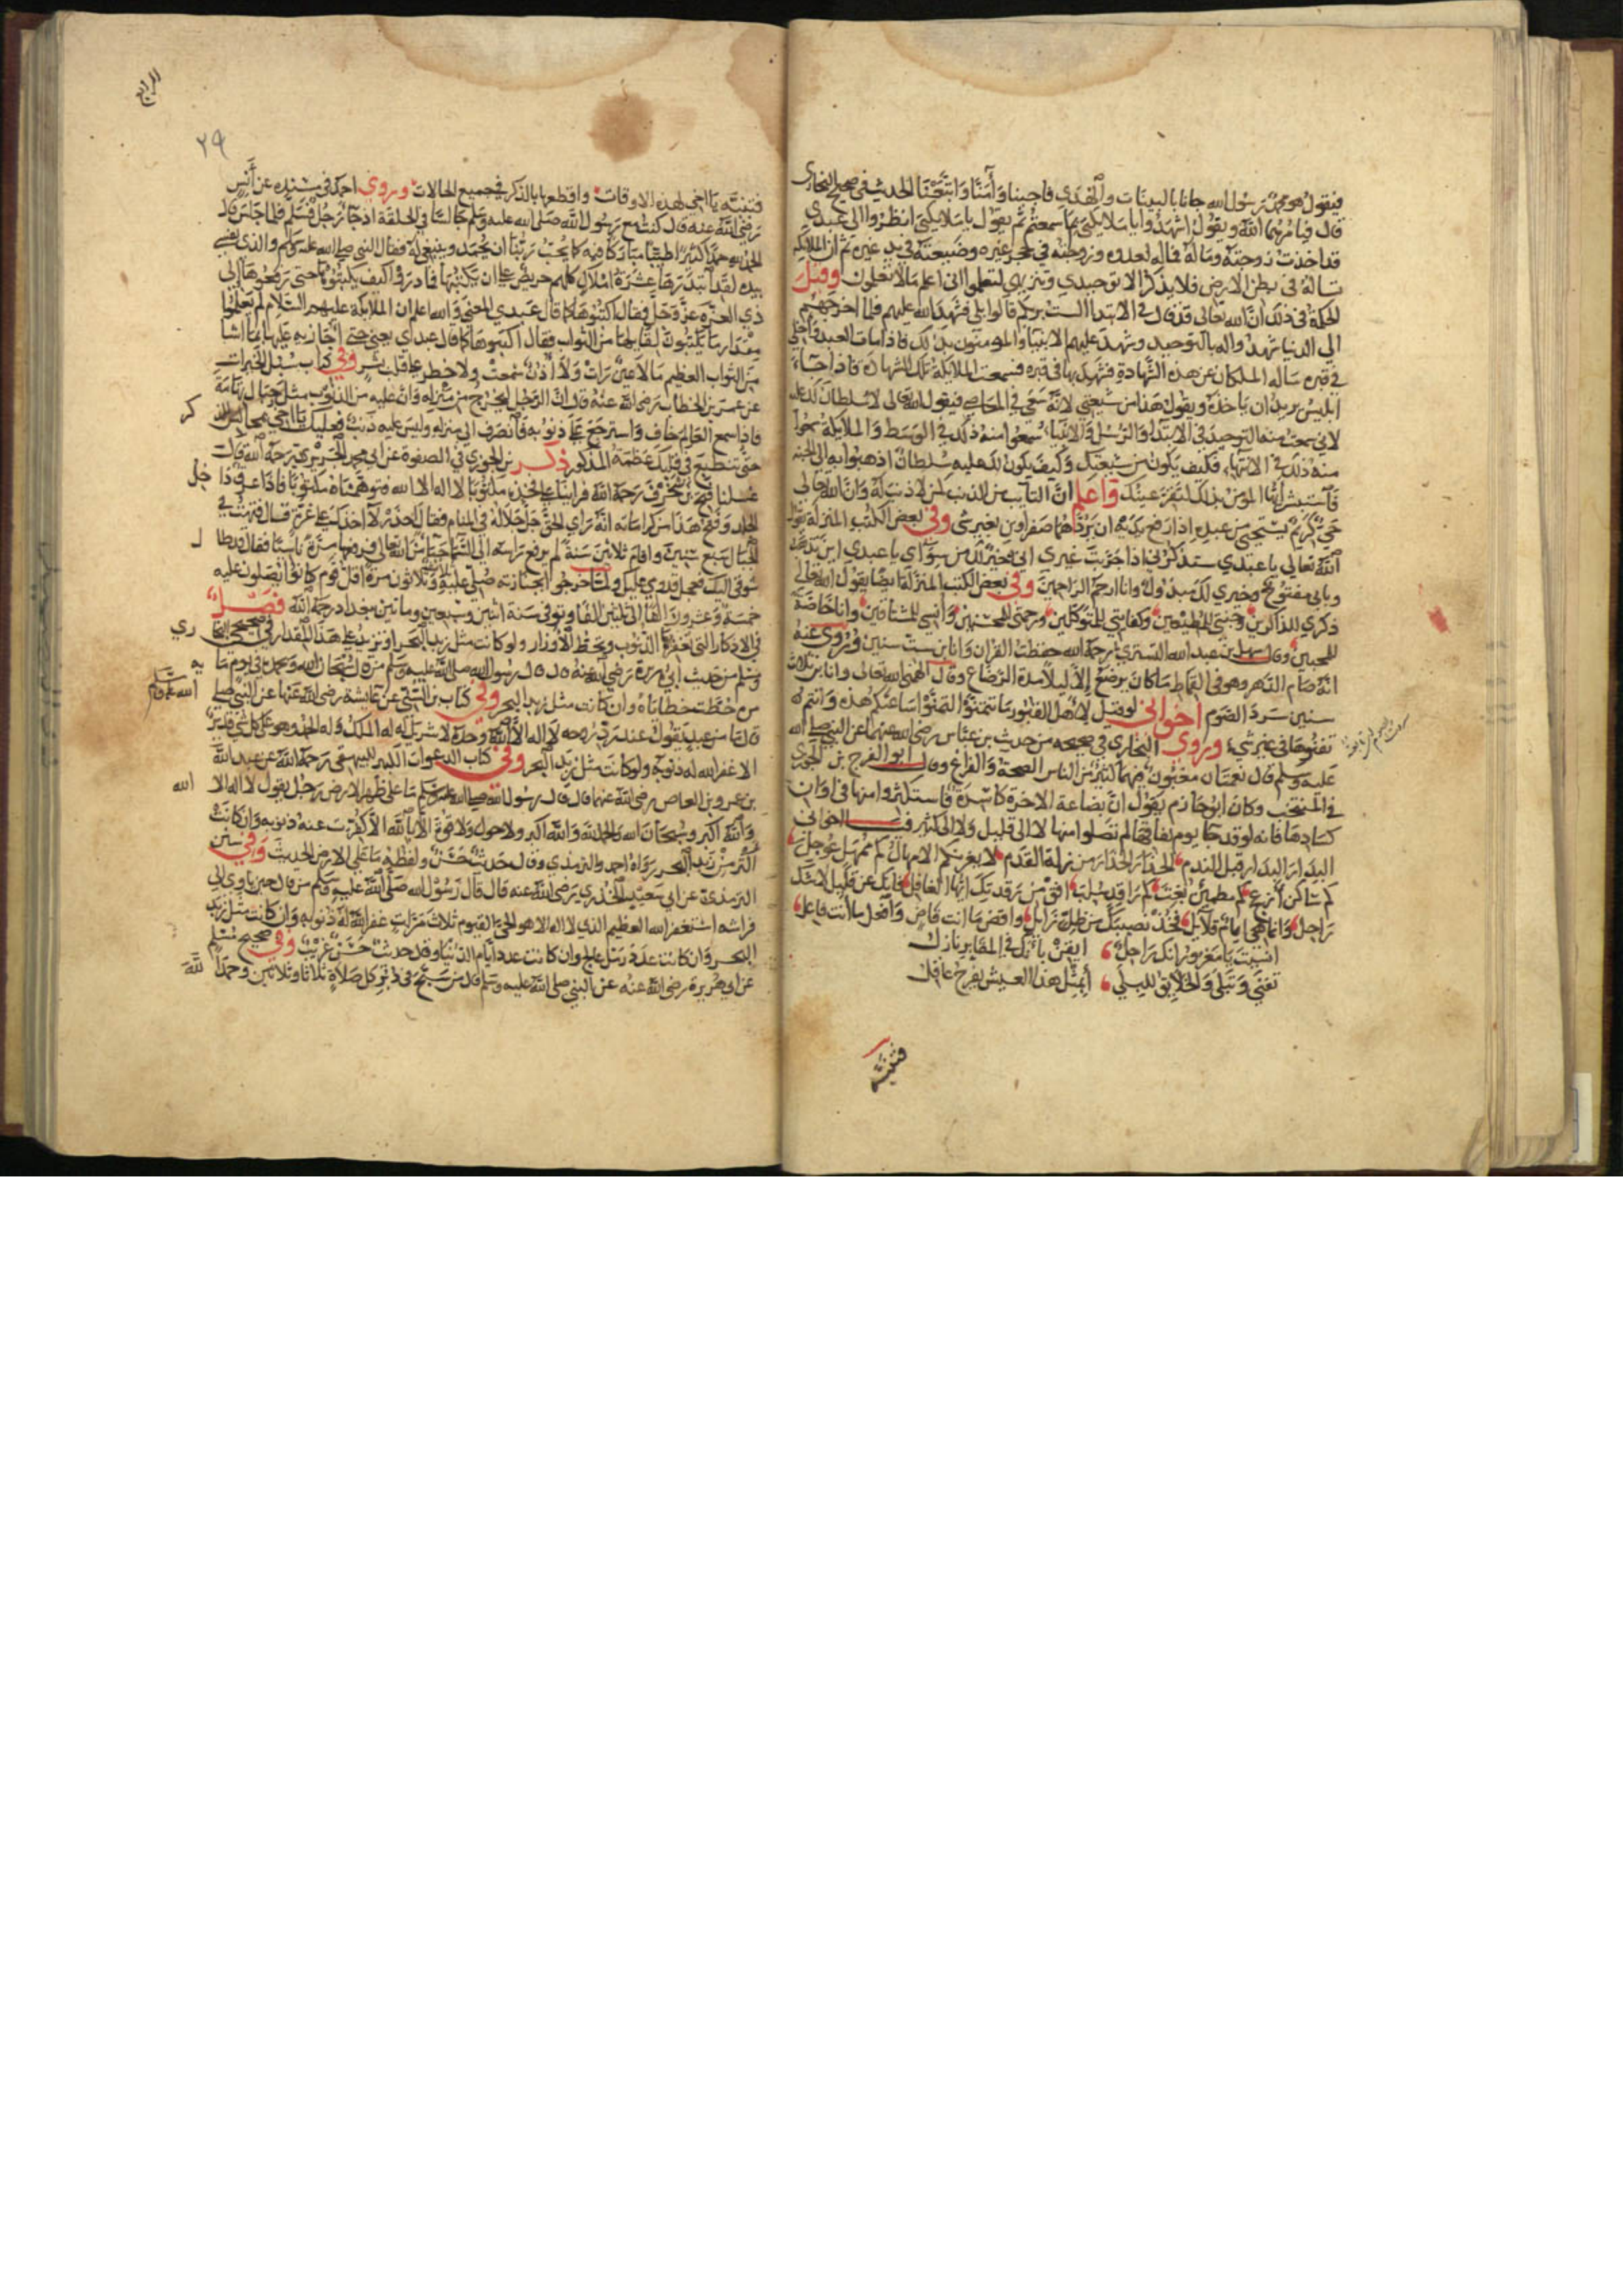 فيقول هو محمد رسول الله جانا بالبينات والهدى فاجبنا وآمنا واتبعنا الحديث في صحيح البخارى
قال فيامرهما الله ويقول اشهدوا يا ملايكتى بما سمعتم ثم يقول يا ملايكتى انظروا الى عبدي
قد اخذت زوجته وماله فماله لعدوه وزوجته في حجر غيره وضيعته في يد غيره ثم ان الملايكه
تساله فى بطن الارض فلا يذكر الا توحيدي وتنزيهي لتعلموا انى اعلم مالا تعلمون وقيل
الحكمة فى ذلك ان الله تعالى قد قال فى الابتدا الست بربكم قالوا بلى فشهد الله عليهم فلما اخرجهم
الى الدنيا شهدوا له بالتوحيد وشهد عليهم الانبيا والمومنون بذلك فاذا مات العبد وادخل
في قبره ساله الملكان عن هذه الشهادة فشهد بها فى قبره فسمعت الملايكة تلك الشهادة فاذا جاء
ابليس يريد ان ياخذه ويقول هذا من شيعتي لانه تبعني فى المعاصي فيقول الله تعالى لا سلطان لك عليه
لاني سمعت منه التوحيد فى الابتدا والرسل والانبيا سمعوا منه ذلك فى الوسط والملايكة سمعوا
منه ذلك فى الانتها فكيف يكون من شيعتك وكيف يكون لك عليه سلطان اذهبوا به الى الجنه
فاستبشر ايها المومن بذلك لتقر عينك واعلم ان التايب من الذنب كمن لا ذنب له وان الله تعالى
حيي كريم يستحيى من عبده اذا رفع يديه ان يردهما صفراوين بغير شى وفى بعض الكتب المنزلة يقول
الله تعالى يا عبدي ستذكرنى اذا جربت غيرى انى خير لك من سواى يا عبدي
وبابى مفتوح وخيري لك مبذول وانا ارحم الراحمين وفى بعض الكتب المنزلة ايضا يقول الله تعالى
ذكرى للذاكرين وجنتي للمطيعين وكفايتي للمتوكلين ورحمتي للمحسنين وأنسي للمشتاقين وانا خاصة
للمحبين وقال سهل بن عبد الله التستري رحمه الله حفظت القران وانا بن ست سنين وروى عنه
انه صام الدهر وهو فى القماط ما كان يرضع إلا ليلا مدة الرضاع وقال الهمنى الله تعالى وانا بن ثلاث
سنين سرد الصوم اخوانى لو قيل لاهل القبور ما تتمنوا لتمنوا ساعتكم هذه وانتم
تفنوها فى غير شي وروى البخاري في صحيحه من حديث بن عباس رضي الله عنهما عن النبي صلى الله
عليه وسلم قال نعمتان مغبون فيهما كثير من الناس الصحة والفراغ وقال ابو الفرج بن الجوزى
فى المنتخب وكان ابو حازم يقول ان بضاعة الاخرة كاسدة فاستكثروا منها فى اوان
كسادها فانه لو قد جا يوم نفاقها لم تصلوا منها لا الى قليل ولا الى كثير اخوانى
البدار البدار قبل الندم الحذار الحذار من زلة القدم لا يغرنكم الامهال كم ممهل عوجل
كم ساكن أزعج كم مطمين بغت كم راقد سلب افق من رقدتك ايها الغافل فانك عن قليل لا شك
راحل وانما هي ايام قلايل فخذ نصيبك من ظل زايل واقض ما انت قاض وافعل ما انت فاعل
انسيت يا مغرور انك راحل ايقن بانك فى المقابر نازل
تفنى وتبلى والخلايق للبلى أبمثل هذا العيش يفرح عاقل
فتنبه
الرابع
٢٩
فتنبه يا اخى لهذه الاوقات واقطعها بالذكر في جميع الحالات وروى احمد فى مسنده عن أنس
رضي الله عنه قال كنت مع رسول الله صلى الله عليه وسلم جالسا فى الحلقة اذ جا رجل فسلم فلما جلس قال
الحمد لله حمدا كثيرا طيبا مباركا فيه كما يحب ربنا ان يحمد وينبغي له فقال النبي صلى الله عليه وسلم والذي نفسي
بيده لقد ابتدرها عشرة املاك كلهم حريص على ان يكتبها فما دروا كيف يكتبونها حتى رفعوها الى
ذي العزه عز وجل فقال اكتبوها كما قال عبدي المعنى والله اعلم ان الملايكه عليهم السلام لم يعلموا
مقدار ما يكتبون لقايلها من الثواب فقال اكتبوها كما قال عبدى يعنى حتى أجازيه عليها بما اشا
من الثواب العظيم مالا عين رات ولا أذن سمعت ولا خطر على قلب بشر وفى كتاب سبل الخيرات
عن عمر بن الخطاب رضى الله عنه قال ان الرجل ليخرج من منزله وان عليه من الذنوب مثل جبال تهامة
فاذا سمع العالم خاف واسترجع على ذنوبه فانصرف الى منزله وليس عليه ذنب فعليك يا اخي بمجالس الذكر
حتى تنطبع في قلبك عظمة المذكور ذكر بن الجوزي فى الصفوة عن ابى محمد الحريرى رحمه الله قال
غسلنا فتح بن شخرف رحمه الله فراينا على فخذه مكتوبا لا اله الا الله فتوهمناه مكتوبا فاذا عرق داخل
الجلد وفتح هذا من كراماته انه راى الحق جل جلاله فى المنام فقال احذر لا اخذك على غرة قال فتهت فى
الجبال سبع سنين واقام ثلاثين سنة لم يرفع راسه الى السما حيا من الله تعالى فرفعها مرة ناسيا فقال قد طال
شوقى اليك فعجل قدومي عليك ولما خرجوا بجنازته صلى عليه ثلاثة وثلاثون مرة اقل قوم كانوا يصلون عليه
خمسة وعشرون الفا الى ثلثين الفا وتوفى سنة اثنين وسبعين وماتين ببغداد رحمه الله فصل
فى الاذكار التى تغفر الذنوب وتحط الأوزار ولو كانت مثل زبد البحر او تزيد على هذا المقدار فى صحيح البخارى
ومسلم من حديث ابى هريرة رضي الله عنه قال قال رسول الله صلى الله عليه وسلم من قال سبحان الله وبحمده فى يوم مايه
مره حطت خطاياه وان كانت مثل زبد البحر وفى كتاب بن السني عن عايشة رضى الله عنها عن النبي صلى الله عليه وسلم
قال ما من عبد يقول عند رد روحه لا اله الا الله وحده لا شريك له له الملك وله الحمد وهو على كل شي قدير
الا غفر الله له ذنوبه ولو كانت مثل زبد البحر وفى كتاب الدعوات الكبير للبيهقى رحمه الله عن عبد الله
بن عمرو بن العاص رضى الله عنهما قال قال رسول الله صلى الله عليه وسلم ما على ظهر الارض رجل يقول لا اله الا الله
والله اكبر وسبحان الله والحمد لله والله اكبر ولا حول ولا قوة الا بالله الا كفرت عنه ذنوبه وان كانت
أكثر من زبد البحر رواه احمد والترمذي وقال حديث حسن ولفظه ما على الارض الحديث وفى سنن
الترمذى عن ابى سعيد الخدري رضى الله عنه قال قال رسول الله صلى الله عليه وسلم من قال حين ياوي الى
فراشه استغفر الله العظيم الذي لا اله الا هو الحي القيوم ثلاث مرات غفر الله له ذنوبه وان كانت مثل زبد
البحر وان كانت عدد رمل عالج وان كانت عدد أيام الدنيا وقال حديث حسن غريب وفى صحيح مسلم
عن ابى هريرة رضى الله عنه عن النبي صلى الله عليه وسلم قال من سبح فى دبر كل صلاة ثلاثا وثلاثين وحمد الله